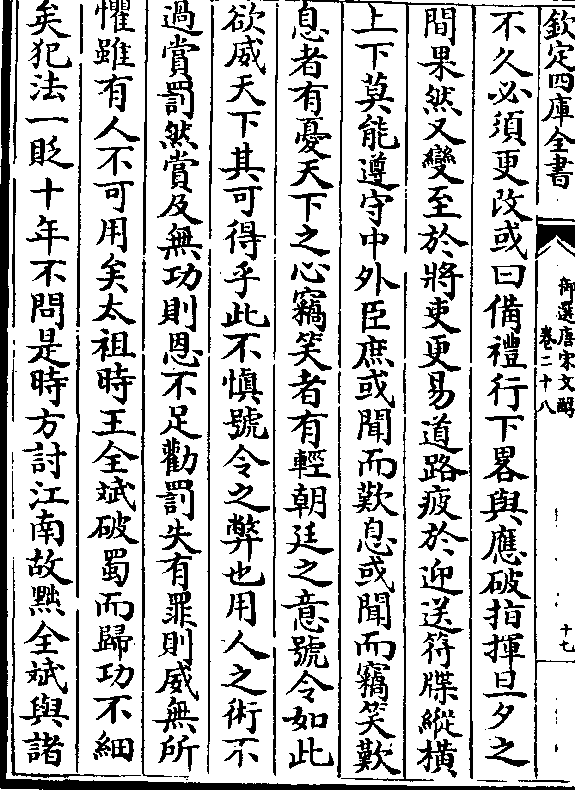 欽定四庫全書
御選唐宋文醇
卷二十八
十七
不久必須更改或曰備禮行下畧與應破指揮旦夕之
間果然又變至於將吏更易道路疲於迎送符牒縱橫
上下莫能遵守中外臣庶或聞而歎息或聞而竊笑歎
息者有憂天下之心竊笑者有輕朝廷之意號令如此
欲威天下其可得乎此不慎號令之弊也用人之術不
過賞罰然賞及無功則恩不足勸罰失有罪則威無所
懼雖有人不可用矣太祖時王全斌破蜀而歸功不細
矣犯法一貶十年不問是時方討江南故黜全斌與諸